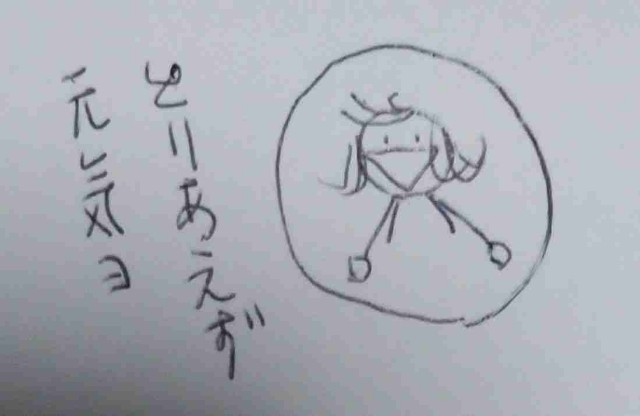 とりあえず
元気ヨ